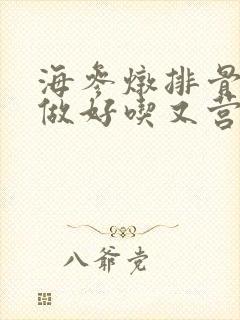 海参燉排骨
做好喫又营
八爷党